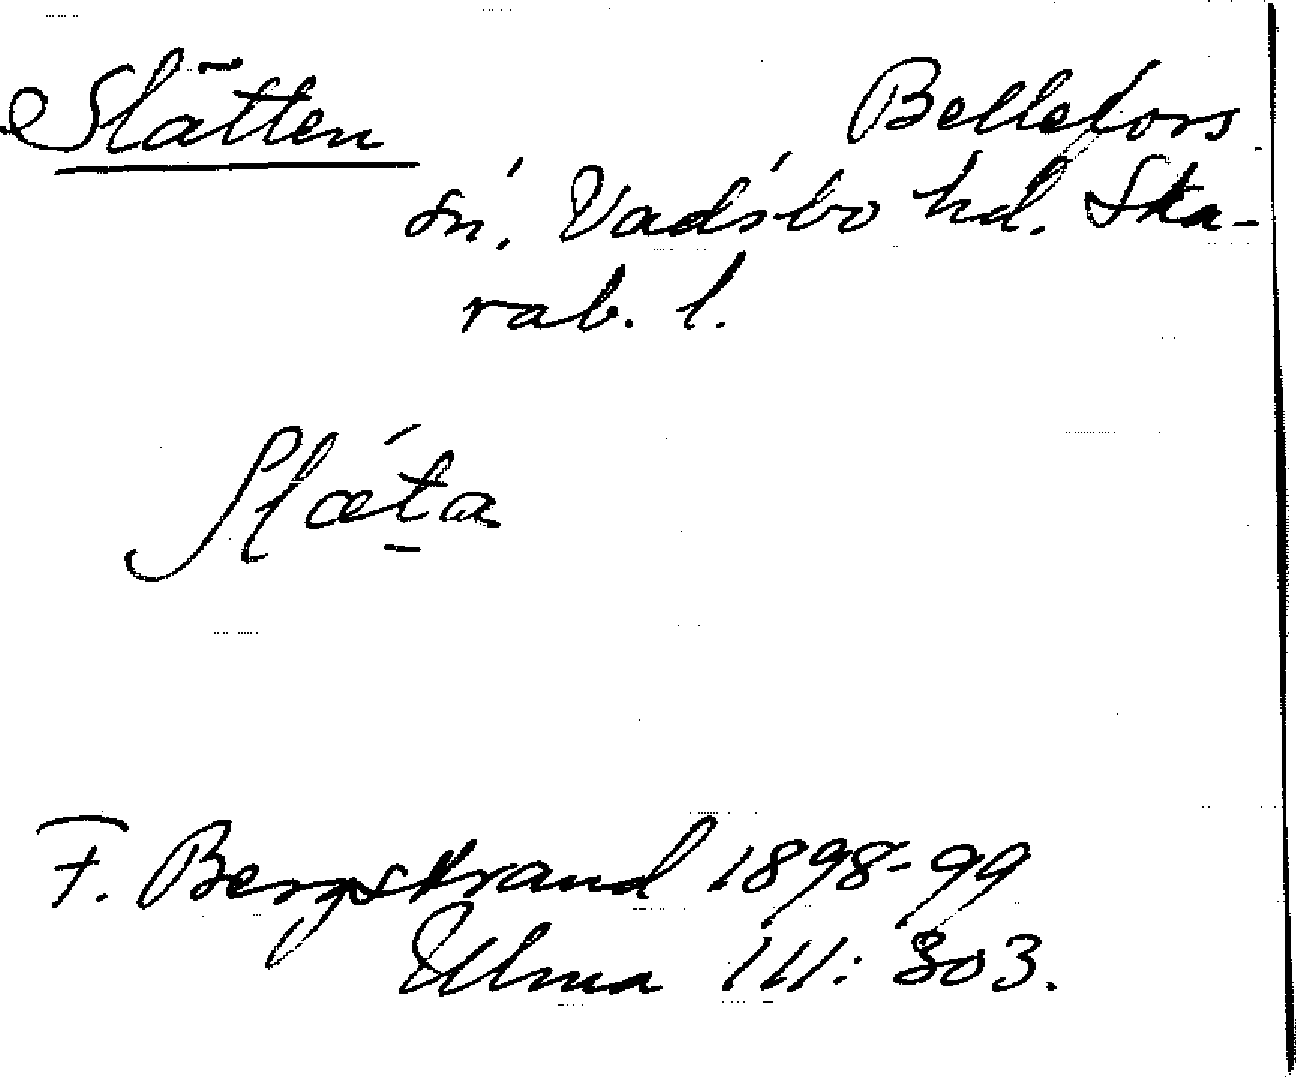 Slätten Bellefors
sn. Vadsbo hd. Ska-
rab. l.
Slæ´t̠a
F. Bergstrand 1898-99
Ulma 111: 303.